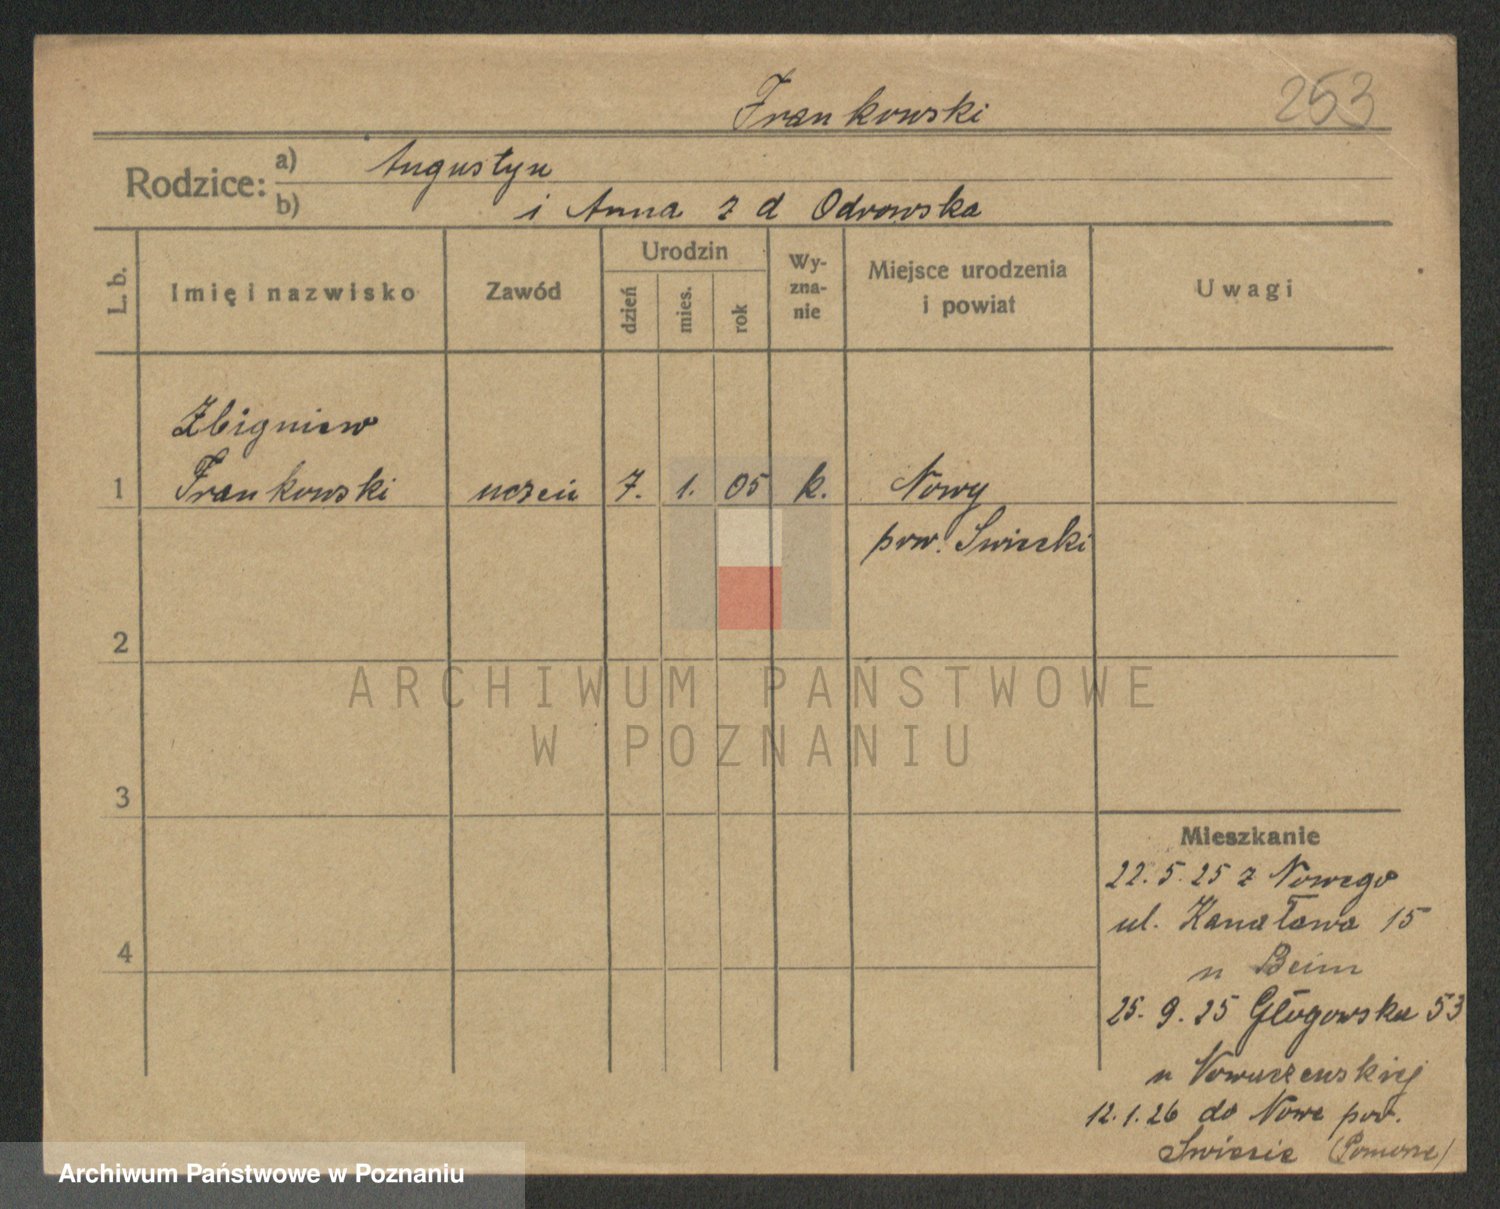 Frankowski
253
Rodzice: a) Augustyn
b) i Anna z d Odrowska
L. b.
Imię i nazwisko
Zawód
Urodzin
dzień
mies.
rok
Wy-
zna-
nie
Miejsce urodzenia
i powiat
Uwagi
Zbigniew
1 Frankowski uczeń 7. 1. 05 k. Nowy
pow. Swiecki
2
3
4
Mieszkanie
22. 5. 25 z Nowego
ul. Kanałowa 15
u Beim
25. 9. 25 Głogowska 53
u
12. 1. 26 do Nowe pow.
Swiecie (Pomorze)
ARCHIWUM PAŃSTWOWE
W POZNANIU
Archiwum Państwowe w Poznaniu